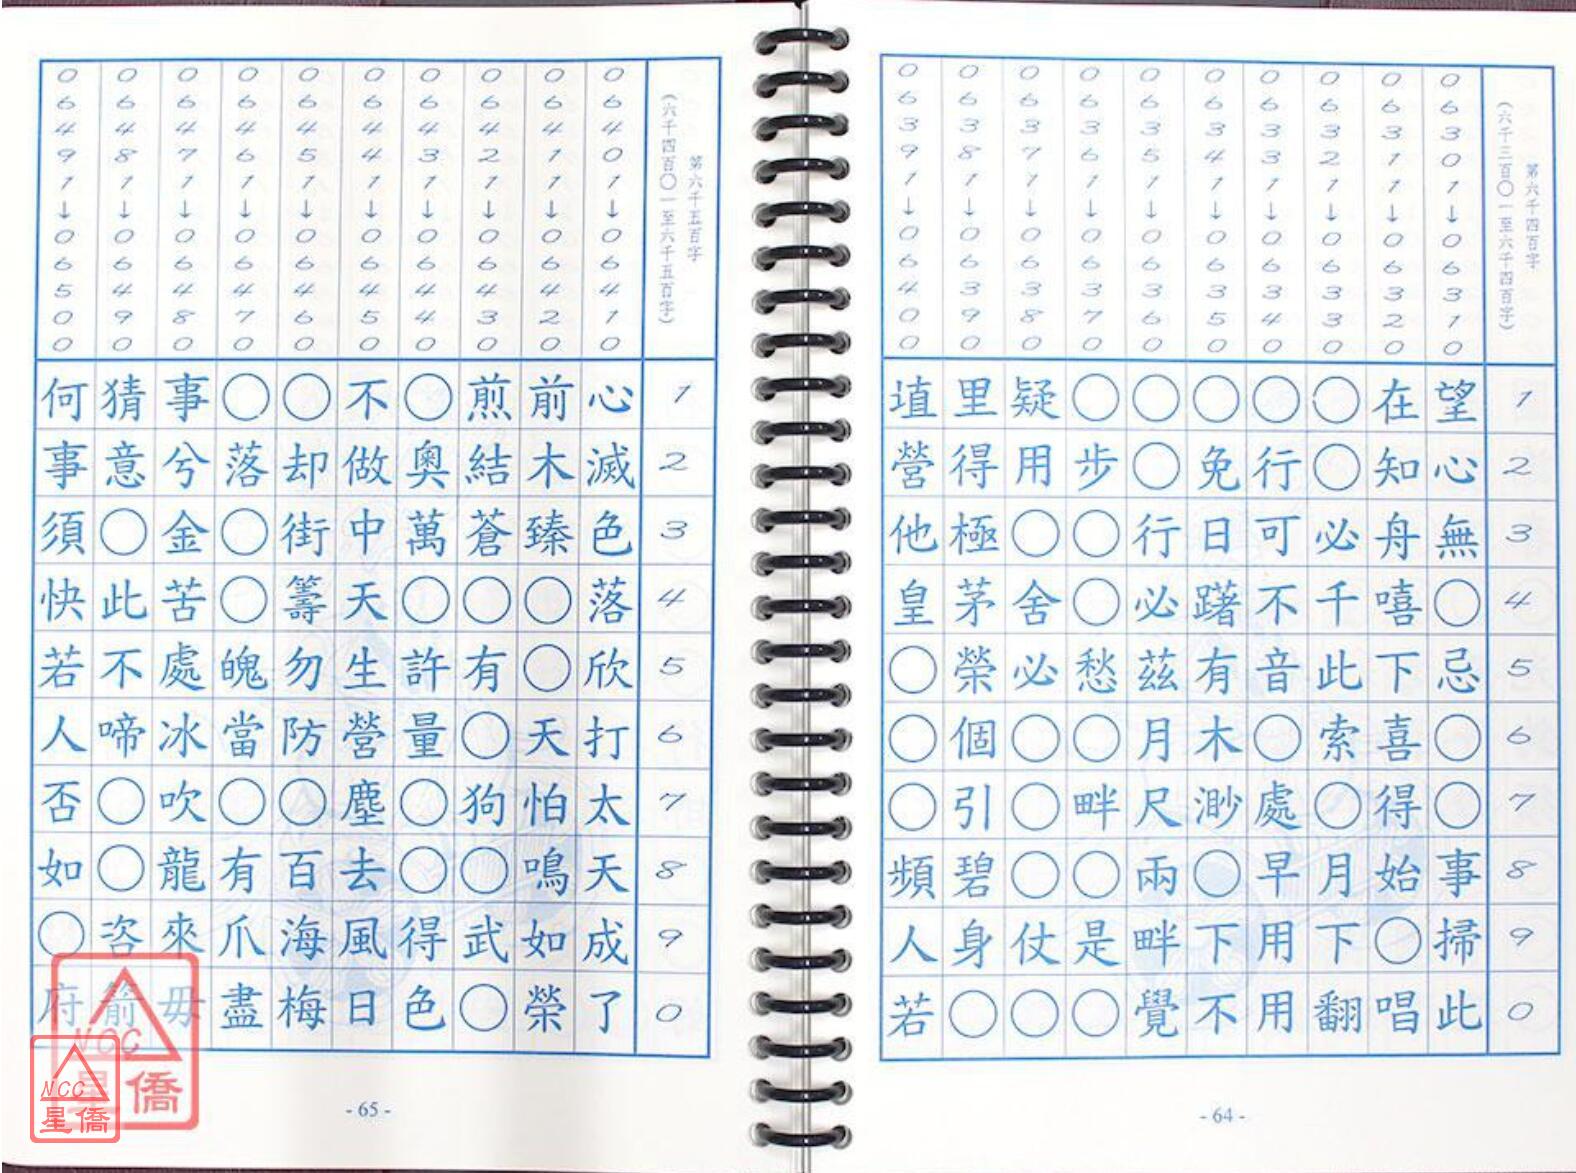 第六千四百字
(六千三百〇一至六千四百字)
1234567890
06301↓06310
望心無〇忌〇〇事掃此
06311↓06320
在知舟嘻下喜得始〇唱
06321↓06330
〇〇必千此索〇月下翻
06331↓06340
〇行可不音〇處早用用
06341↓06350
〇免日躇有木渺〇下不
06351↓06360
〇〇行必茲月尺兩畔覺
06361↓06370
〇步〇〇愁〇畔〇是〇
06371↓06380
疑用〇舍必〇〇〇仗〇
06381↓06390
里得極茅榮個引碧身〇
06391↓06400
埴營他皇〇〇〇頻人若
- 64 -
第六千五百字
(六千四百〇一至六千五百字)
1234567890
06401↓06410
心滅色落欣打太天成了
06411↓06420
前木臻〇〇天怕鳴如榮
06421↓06430
煎結蒼〇有〇狗〇武〇
06431↓06440
〇奧萬〇許量〇〇得色
06441↓06450
不做中天生營塵去風日
06451↓06460
〇却街籌勿防〇百海梅
06461↓06470
〇落〇〇魄當〇有爪盡
06471↓06480
事兮金苦處冰吹龍來毋
06481↓06490
猜意〇此不啼〇〇咨箭
06491↓06500
何事須快若人否如〇府
- 65 -
NCC
星僑
NCC
星僑